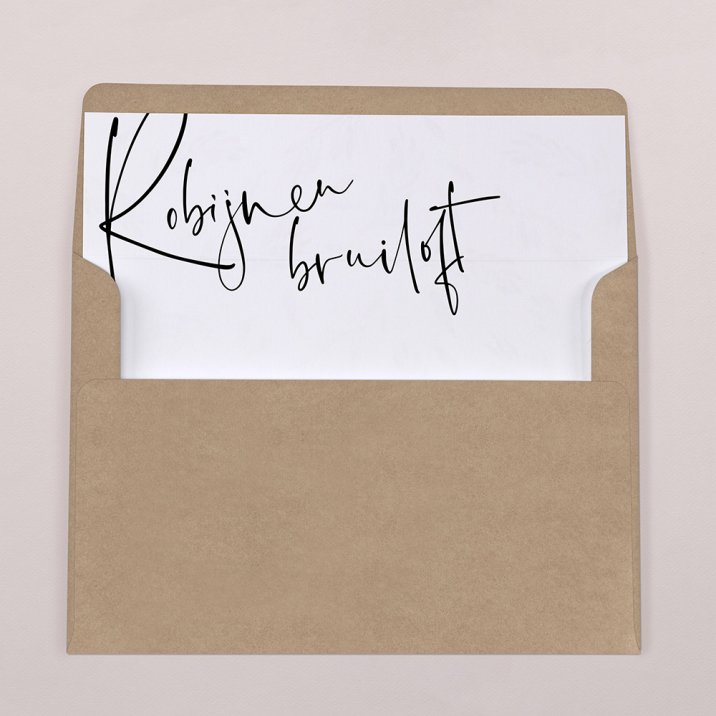 Robijnen
bruiloft